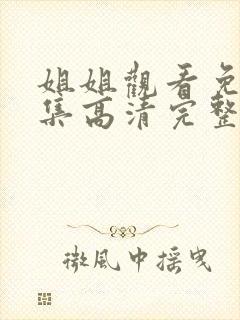 姐姐觀看免
集高清完整
微風中摇曳